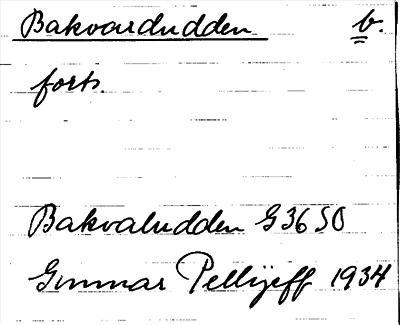 Bakvardudden b.
forts.
Bakvaludden G36 SO
Gunnar Pellijeff 1934